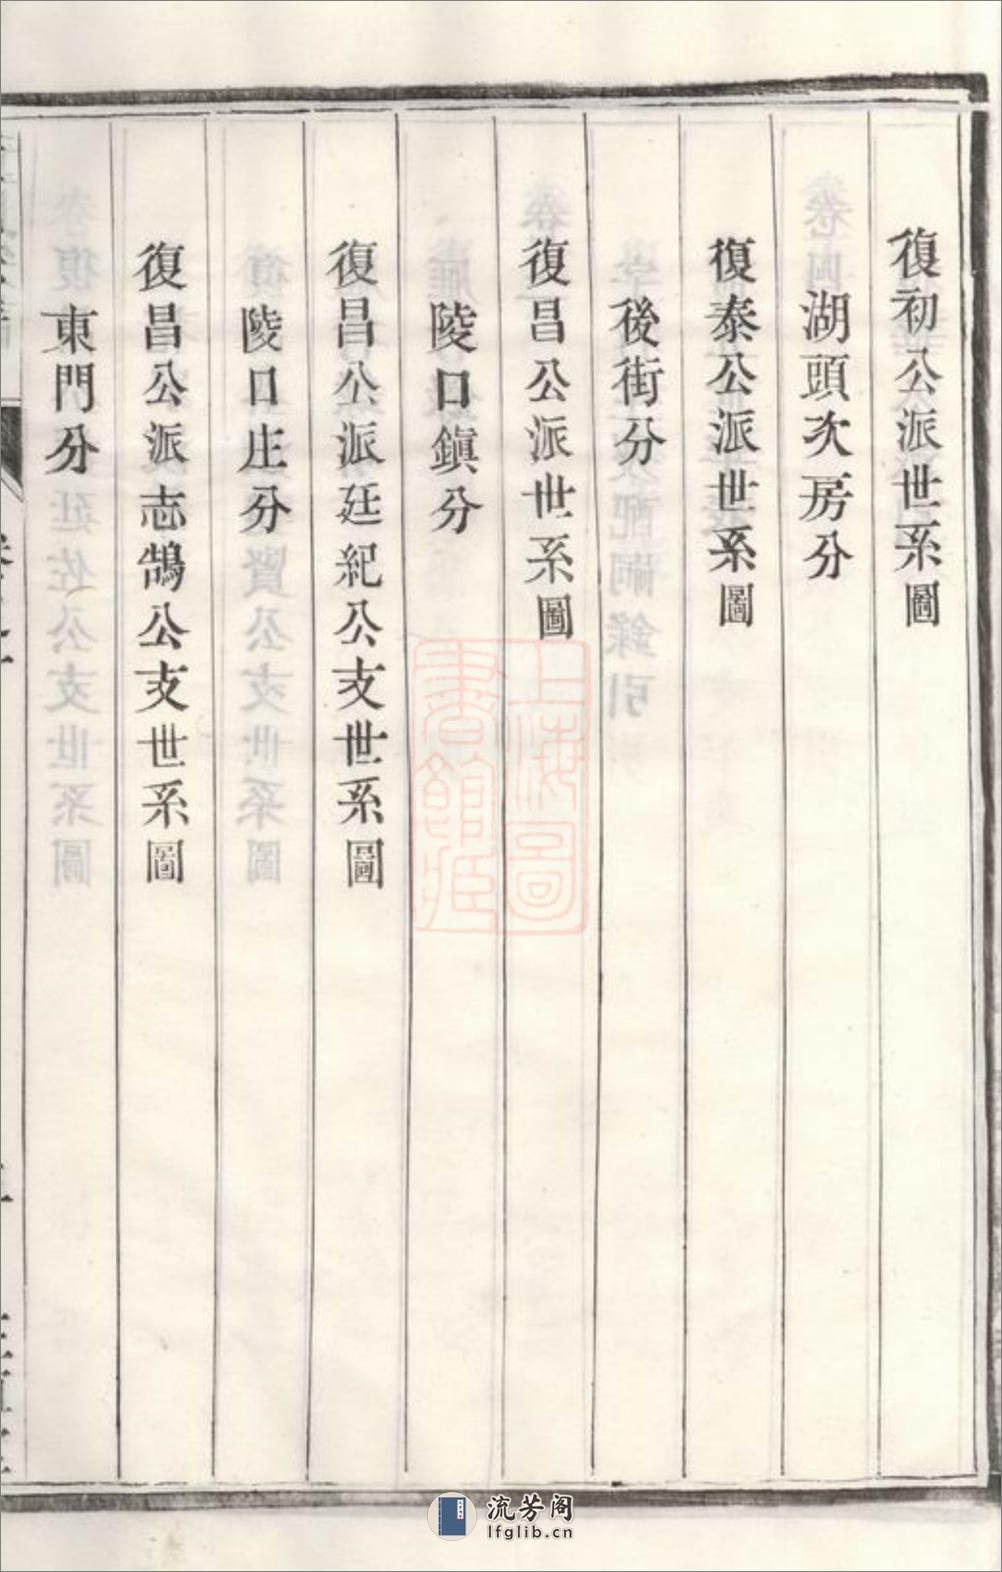 復初公派世系圖
湖頭次房分
復泰公派世系圖
後街分
復昌公派世系圖
陵口鎮分
復昌公派廷紀公支世系圖
陵口庄分
復昌公派志鵠公支世系圖
東門分
上海圖
書館藏
流芳阁
lfglib.cn